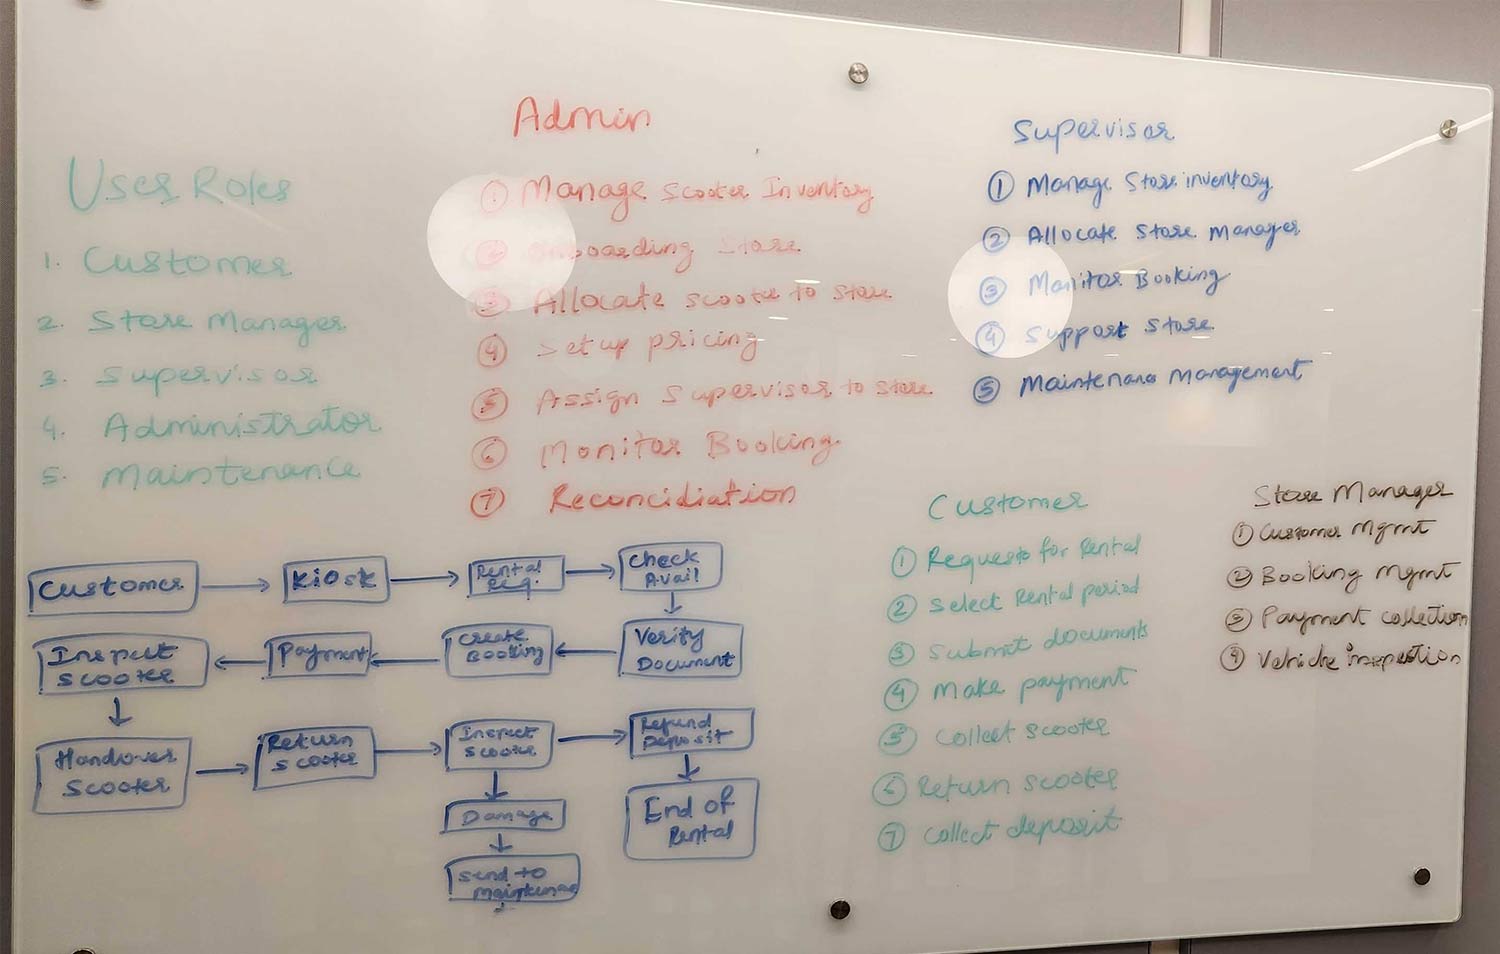 User Roles
1. Customer
2. Store Manager
3. Supervisor
4. Administrator
5. Maintenance
Admin
① Manage Scooter Inventory
② Onboarding Store
③ Allocate scooter to store
④ Setup pricing
⑤ Assign Supervisor to store
⑥ Monitor Booking
⑦ Reconcidiation
Supervisor
① Manage Store inventory
② Allocate Store Manager
③ Monitor Booking
④ Support Store
⑤ Maintenanc management
Customer
① Requests for Rental
② Select Rental period
③ Submit documents
④ Make payment
⑤ Collect Scooter
⑥ Return scooter
⑦ Collect deposit
Store Manager
① Customer Mgmt
② Booking Mgmt
③ Payment collection
④ Vehicle inspection
Customer
Kiosk
Rental
Req.
Check
Avail
Verify
Document
Create
Booking
Payment
Inspect
Scooter
Handover
Scooter
Return
Scooter
Inspect
Scooter
Refund
Deposit
End of
Rental
Damage
Send to